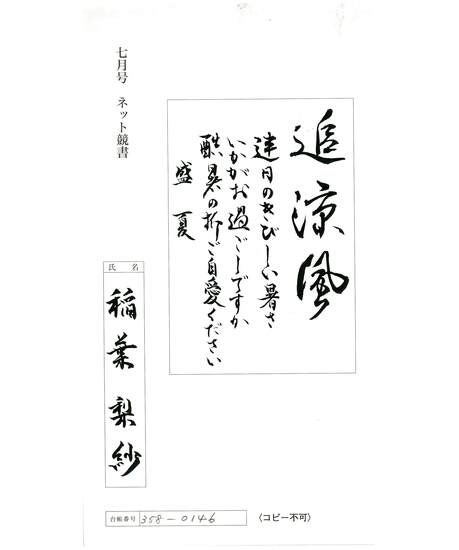 追涼風
連日のきびしい暑さ
いかがお過ごしですか
酷暑の折ご自愛ください
盛夏
七月号 ネット競書
氏名
稲葉梨紗
台帳番号 358-0146
〈コピー不可〉